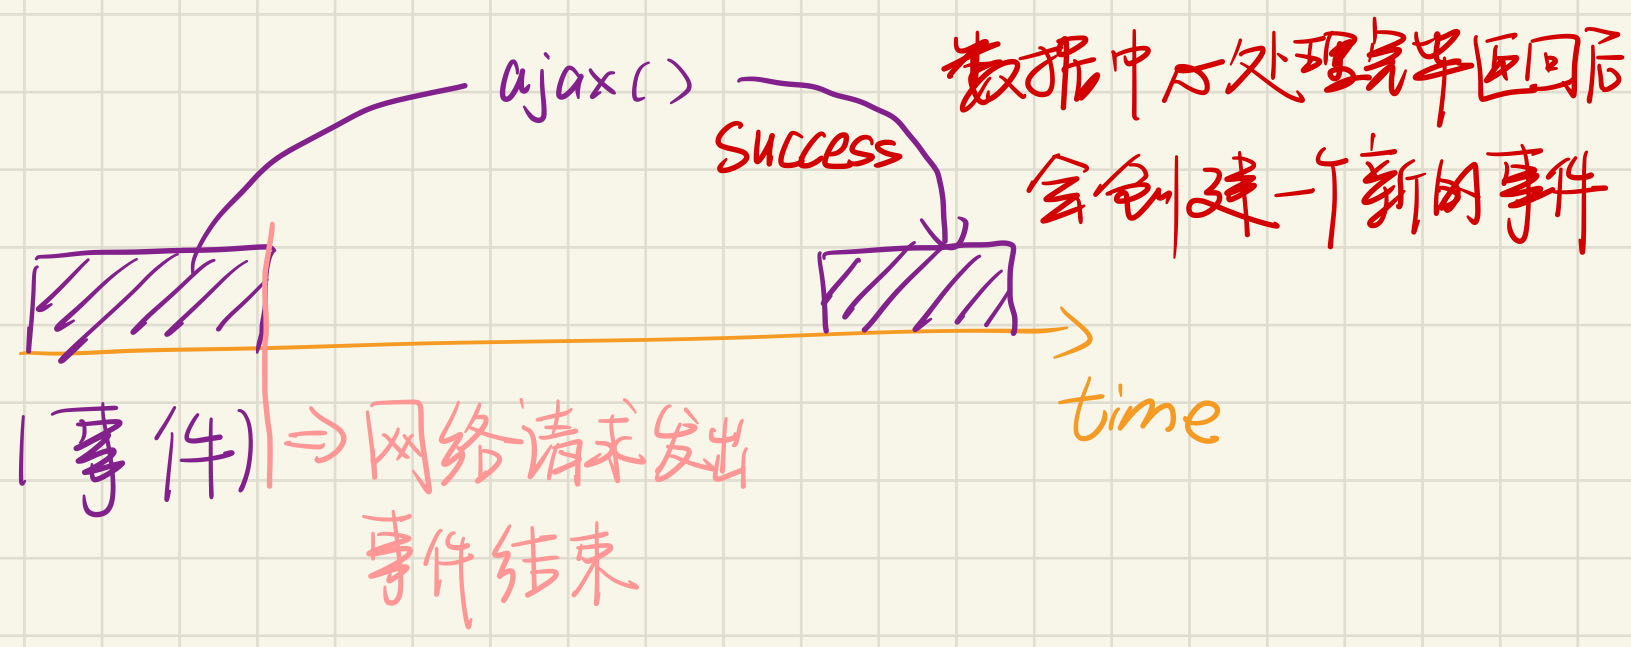 ajax()
success
数据中心处理完毕返回后
会创建一个新的事件
time
(事件)
⇒网络请求发出
事件结束